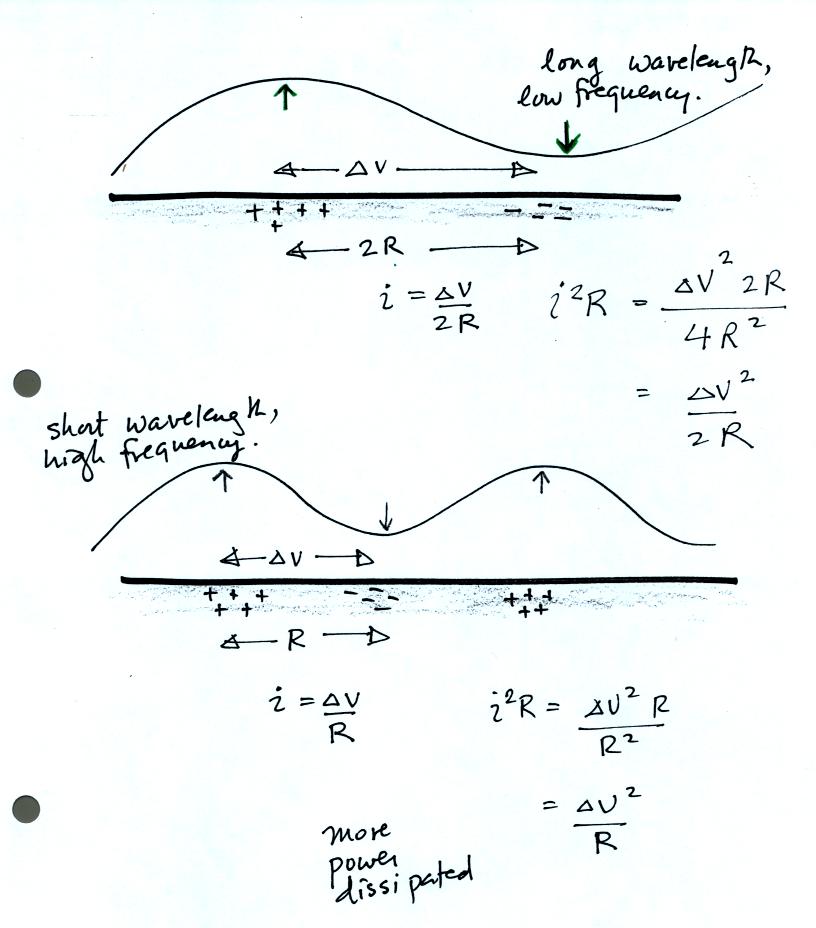 long wavelength,
low frequency.
ΔV
+ + + + +
- - - - -
2R
i = ΔV / 2R
i²R = ΔV² 2R / 4R²
= ΔV² / 2R
short wavelength,
high frequency.
ΔV
+ + + + +
- - - - -
+ + + + +
R
i = ΔV / R
i²R = ΔV² R / R²
= ΔV² / R
more
power
dissipated